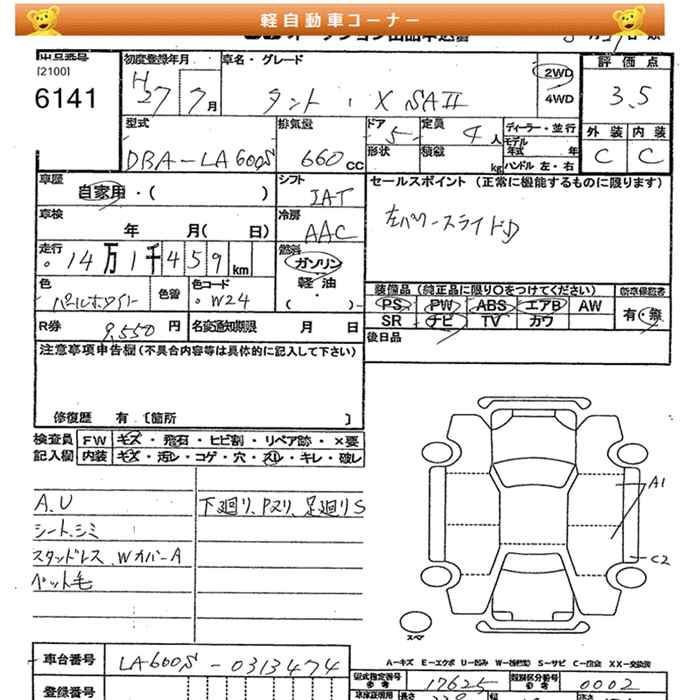 軽自動車コーナー
出品番号
[2100]
6141
初度登録年月
H 27 7 月
車名・グレード
タント ・ X SAⅡ
2WD
4WD
評価点
3.5
外装 内装
C C
型式
DBA-LA600S
排気量
660 CC
ドア
5
形状
定員
4 人
積載
kg
ディーラー・並行
モデル年式 年
ハンドル 左・右
車歴
自家用・( )
シフト
IAT
セールスポイント (正常に機能するものに限ります)
左パワースライドD
車検
年 月( 日)
冷房
AAC
走行
14万1千459 km
燃料
ガソリン
軽油
・
( )
色
パールホワイト
色替
色コード
W24
装備品 (純正品に限り○をつけてください)
PS PW ABS エアB AW
SR ナビ TV カワ
新車保証書
有・無
R券 9,550 円
名変通知期限 月 日
後日品
注意事項申告欄 (不具合内容等は具体的に記入して下さい)
修復歴 有 [箇所 ]
検査員記入欄
FW キズ・飛石・ヒビ割・リペア跡・×要
内装 キズ・汚レ・コゲ・穴・スレ・キレ・破レ
A.U
シート.シミ
スタッドレス Wカバー A
ペット毛
下廻り、Pヌリ、足廻りS
A1
C2
スペア
A-キズ E-エクボ U-凹み W-波(板金) S-サビ C-腐食 XX-交換済
車台番号
LA600S-0313474
登録番号
型式指定番号
17625
類別区分番号
0002